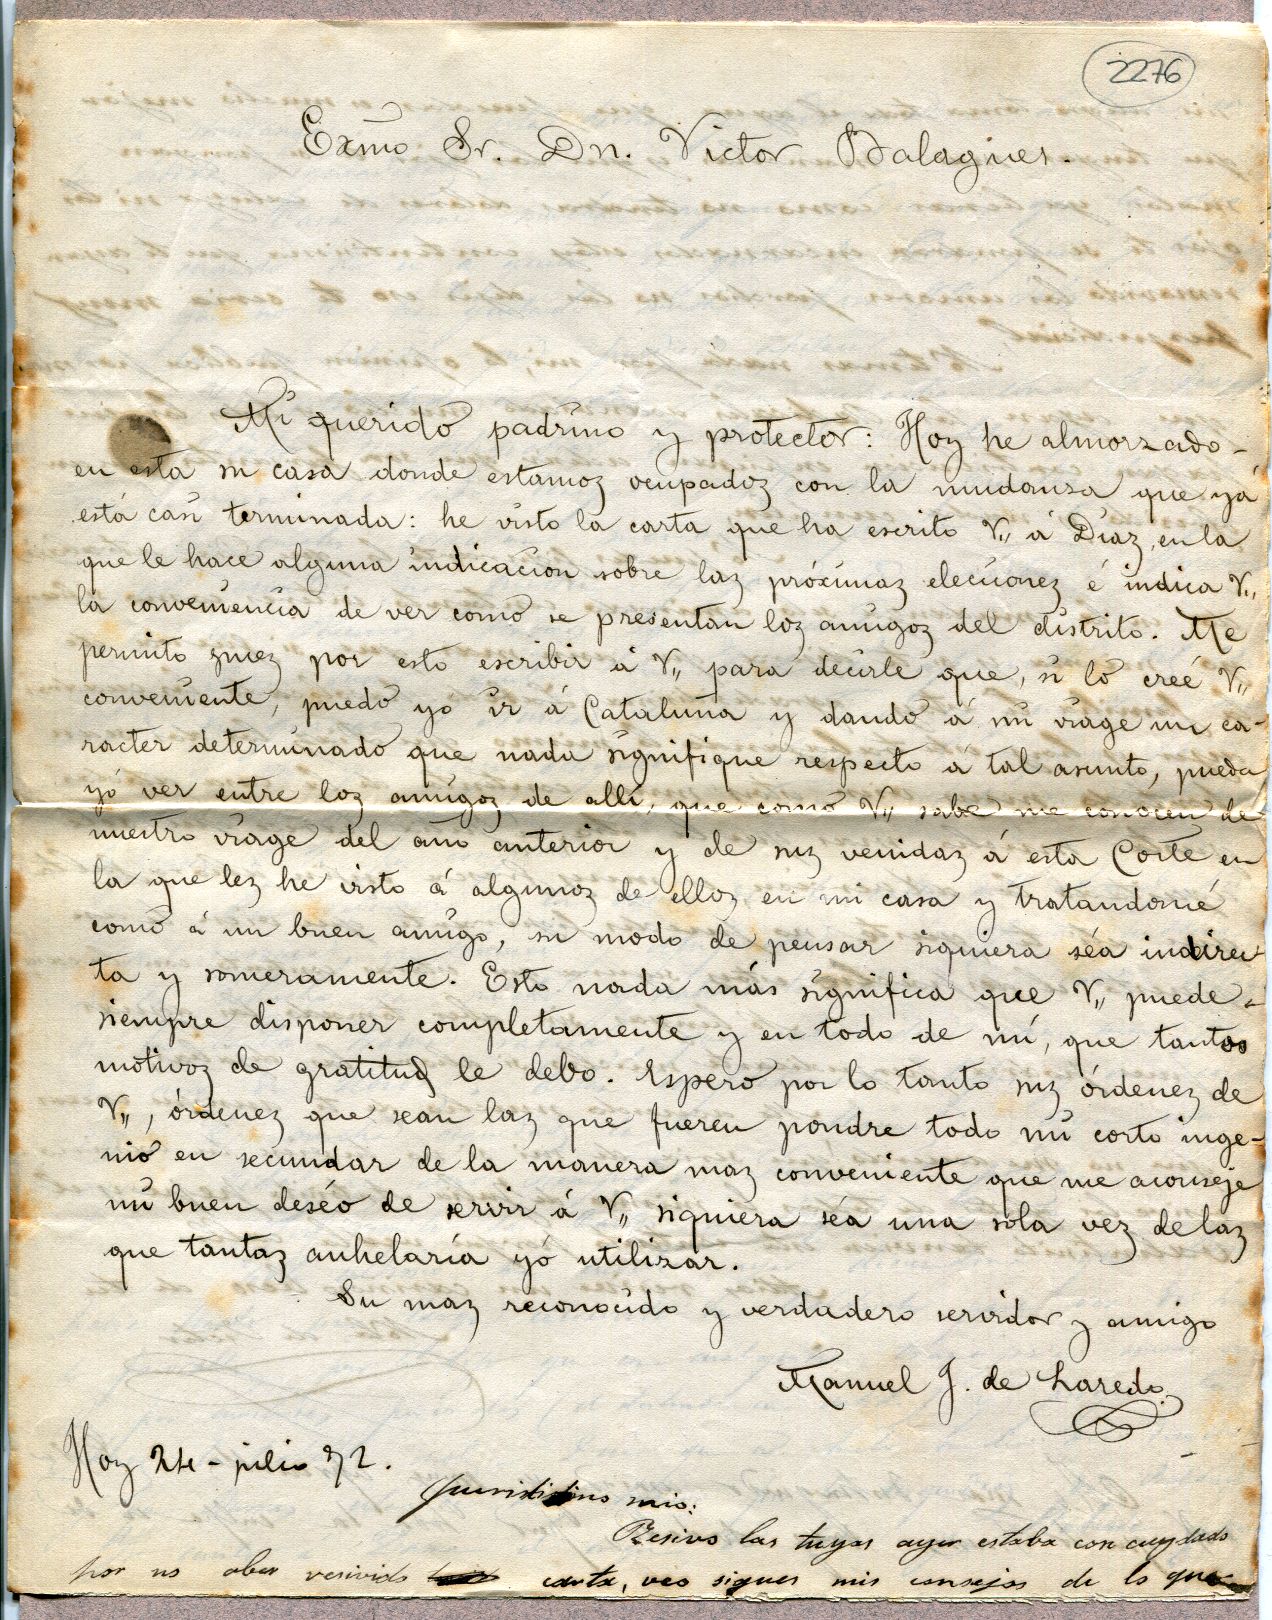 2276
Exmo Sr. Dn. Victor Balaguer.
Mi querido padrino y protector: Hoy he almorzado
en esta su casa donde estamoz ocupadoz con la mudanza que yá
está casi terminada: he visto la carta que ha escrito V,, á Diaz, en la
que le hace alguna indicacion sobre laz próximaz eleccionez é indica V,,
la conveniencia de ver como se presentan loz amigoz del distrito. Me
permito puez por esto escribir á V,, para decirle que, si lo creé V,,
conveniente, puedo yó ir á Cataluña y dando á mi viage un ca-
racter determinado que nada signifique respecto á tal asunto, pueda
yó ver entre loz amigoz de alli, que como V,, sabe me conocen de
nuestro viage del año anterior y de suz venidaz á esta Corte en
la que lez he visto á algunoz de elloz en mi casa y tratandomé
como á un buen amigo, su modo de pensar siquiera séa indirec-
ta y someramente. Esto nada más significa que V,, puede
siempre disponer completamente y en todo de mi, que tantos
motivoz de gratitud le debo. Espero por lo tanto suz órdenez de
V,,, órdenez que sean laz que fueren pondre todo mi corto inge-
nio en secundar de la manera maz conveniente que me aconseje
mi buen deséo de servir á V,, siquiera séa una sola vez de laz
que tantaz anhelaría yó utilizar.
Su maz reconocido y verdadero servidor y amigo
Manuel J. de Laredo
Hoy 24 - julio 72.
mio:
Resivo las tuyas ayer estaba con cuydado
por no aber resivido carta, veo sigues mis consejos de lo que